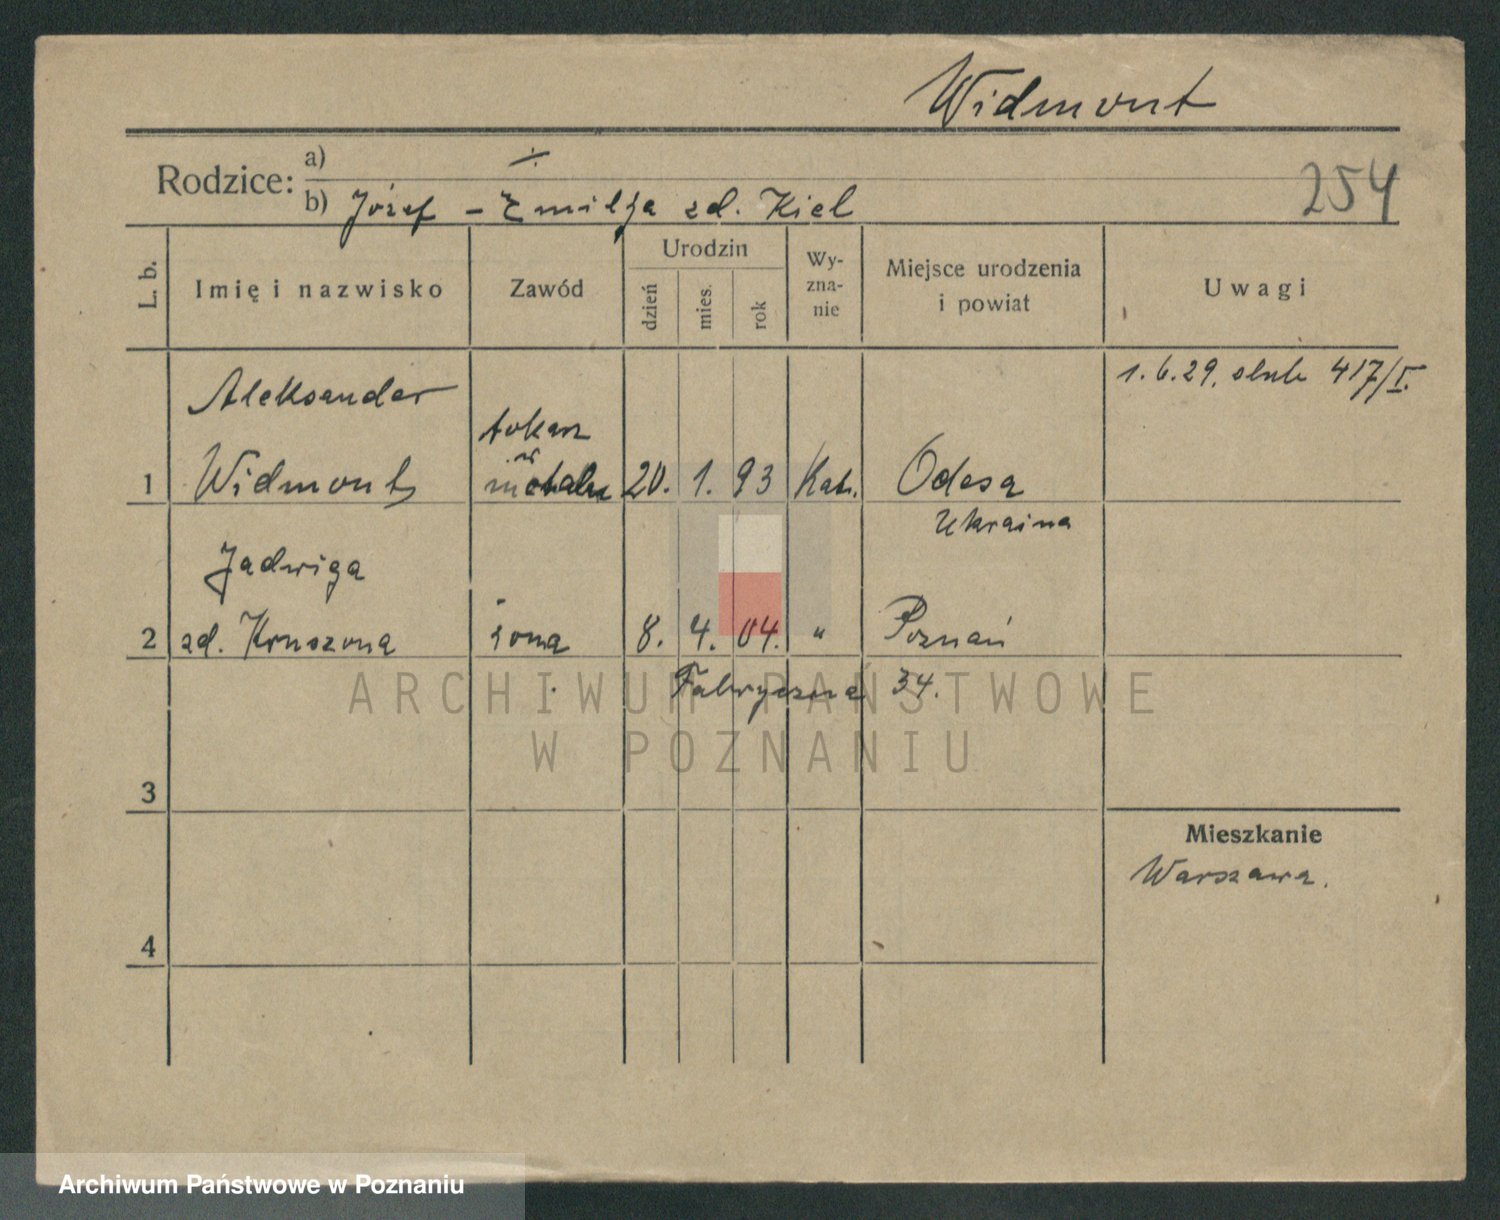 Widmont
Rodzice: a) ÷
254
b) Józef - Emilja zd. Kiel
L. b.
Imię i nazwisko
Zawód
Urodzin
dzień
mies.
rok
Wy-
zna-
nie
Miejsce urodzenia
i powiat
Uwagi
1.6.29. ślub 417/I.
Aleksander
tokarz
w
1 Widmont metalu 20. 1. 93 Kat. Odesa
Ukraina
Jadwiga
2 zd. Kruszona żona 8. 4. 04. " Poznań
Fabryczna 34.
ARCHIWUM PAŃSTWOWE
W POZNANIU
3
Mieszkanie
Warszawa.
4
Archiwum Państwowe w Poznaniu